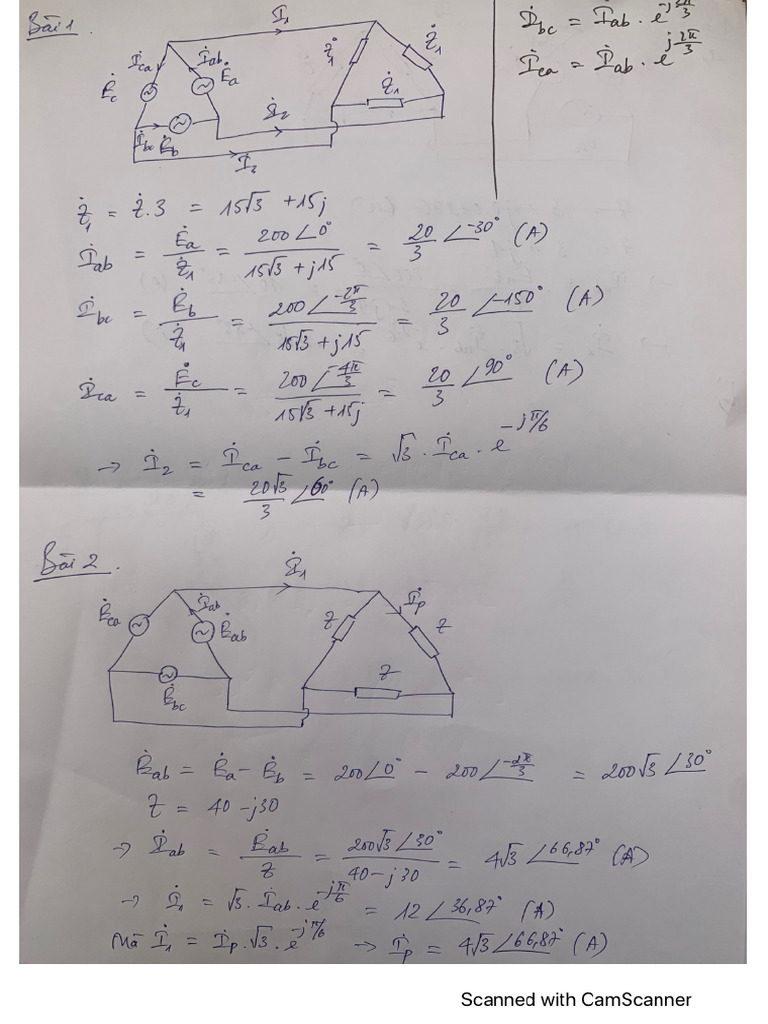 Bài 1
İ₁
İca
İab
Ėc
Ėa
İbc
Ėb
İ₂
I₂
Ż₁
Ż₁
Ż₁
İbc = İab . e^(-j2π/3)
İca = İab . e^(j2π/3)
Ż₁ = Ż.3 = 15√3 + 15j
İab = Ėa/Ż₁ = 200∠0°/(15√3 + j15) = 20/3 ∠-30° (A)
İbc = Ėb/Ż₁ = 200∠-2π/3/(15√3 + j15) = 20/3 ∠-150° (A)
İca = Ėc/Ż₁ = 200∠-4π/3/(15√3 + 15j) = 20/3 ∠90° (A)
→ İ₂ = İca - İbc = √3 . İca . e^(-jπ/6)
= 20√3/3 ∠60° (A)
Bài 2.
İ₁
Ėca
İab
Ėab
Ėbc
İp
Z
Z
Z
Ėab = Ėa - Ėb = 200∠0° - 200∠-2π/3 = 200√3 ∠30°
Z = 40 - j30
→ İab = Ėab/Z = 200√3 ∠30°/(40 - j30) = 4√3 ∠66,87° (A)
→ İ₁ = √3 . İab . e^(-jπ/6) = 12 ∠36,87° (A)
Mà İ₁ = İp . √3 . e^(-jπ/6) → İp = 4√3 ∠66,87° (A)
Scanned with CamScanner